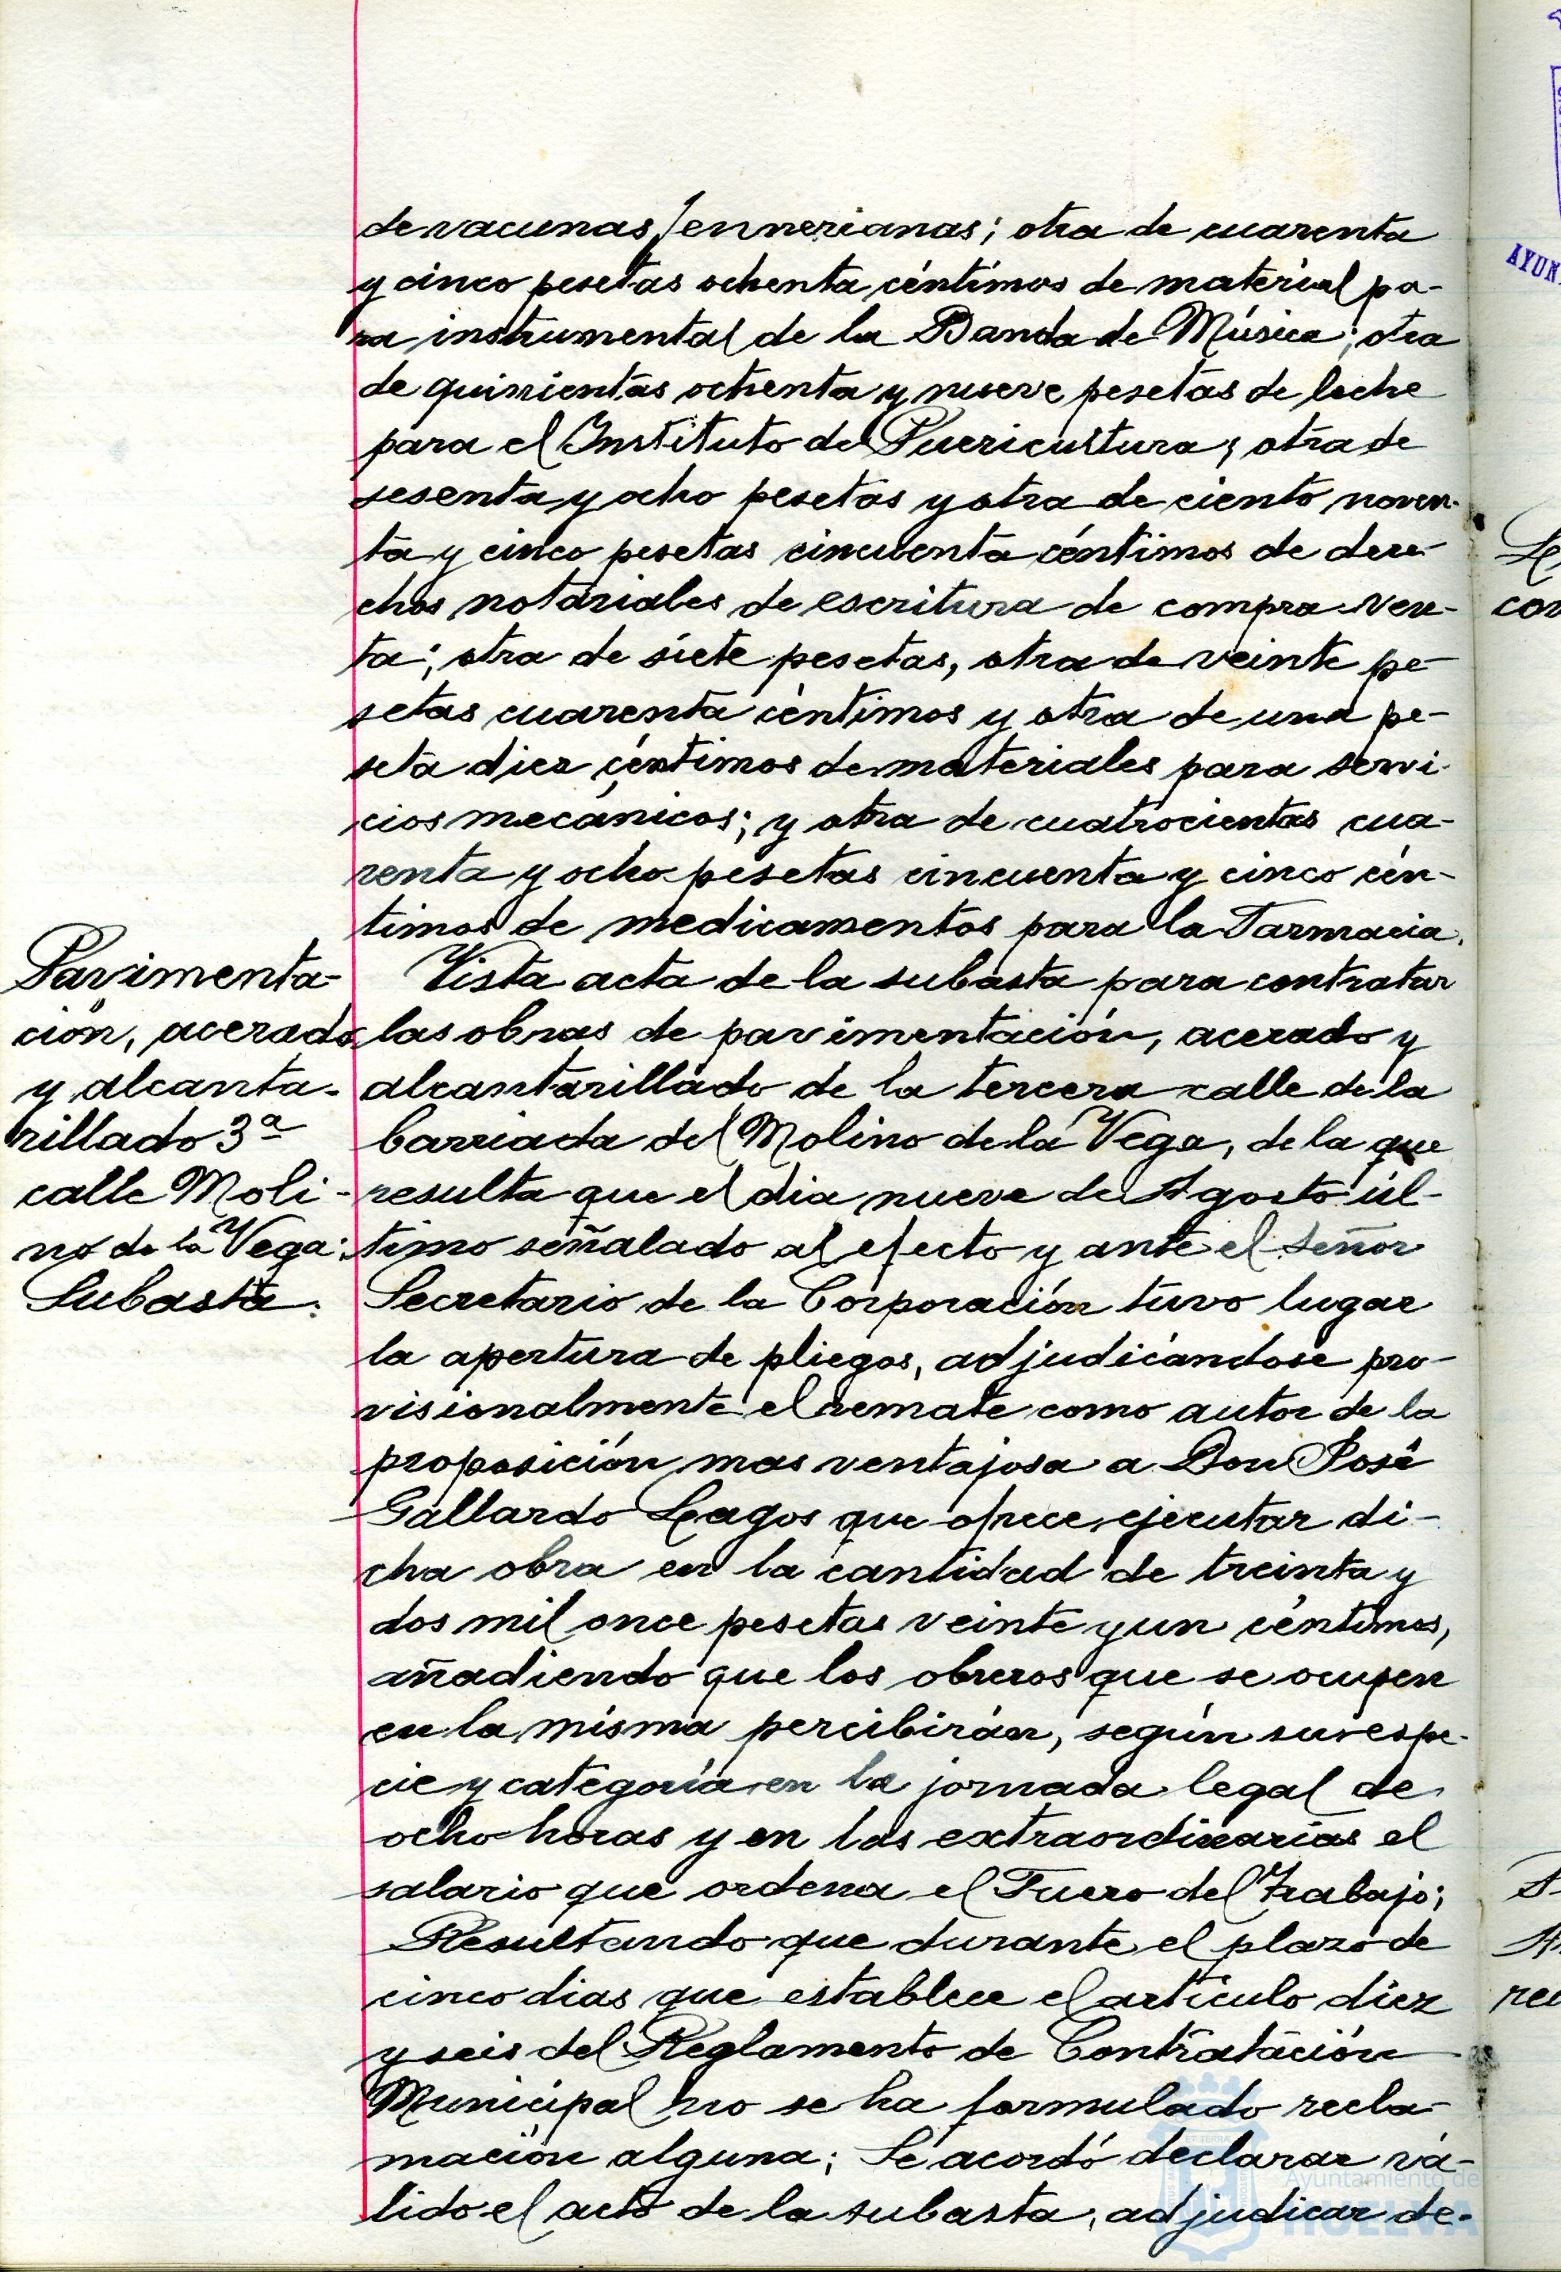 de vacunas Jennerianas; otra de cuarenta
y cinco pesetas ochenta céntimos de material pa-
ra instrumental de la Banda de Música; otra
de quinientas ochenta y nueve pesetas de leche
para el Instituto de Puericultura; otra de
sesenta y ocho pesetas y otra de ciento noven-
ta y cinco pesetas cincuenta céntimos de dere-
chos notariales de escritura de compra-ven-
ta; otra de siete pesetas, otra de veinte pe-
setas cuarenta céntimos y otra de una pe-
seta diez céntimos de materiales para servi-
cios mecánicos; y otra de cuatrocientas cua-
renta y ocho pesetas cincuenta y cinco cén-
timos de medicamentos para la Farmacia.
Pavimenta-
ción, acerado
y alcanta-
rillado 3ª
calle Moli-
no de la Vega:
Subasta.
Vista acta de la subasta para contratar
las obras de pavimentación, acerado y
alcantarillado de la tercera calle de la
barriada del Molino de la Vega, de la que
resulta que el dia nueve de Agosto úl-
timo señalado al efecto y ante el señor
Secretario de la Corporación tuvo lugar
la apertura de pliegos, adjudicándose pro-
visionalmente el remate como autor de la
proposición mas ventajosa a Don José
Gallardo Lagos que ofrece ejecutar di-
cha obra en la cantidad de treinta y
dos mil once pesetas veinte y un céntimos,
añadiendo que los obreros que se ocupen
en la misma percibirán, según su espe-
cie y categoría en la jornada legal de
ocho horas y en las extraordinarias el
salario que ordena el Fuero del Trabajo;
Resultando que durante el plazo de
cinco dias que establece el artículo diez
y seis del Reglamento de Contratación
Municipal no se ha formulado recla-
mación alguna; Se acordó declarar vá-
lido el acto de la subasta, adjudicar de-
Ayuntamiento de
HUELVA